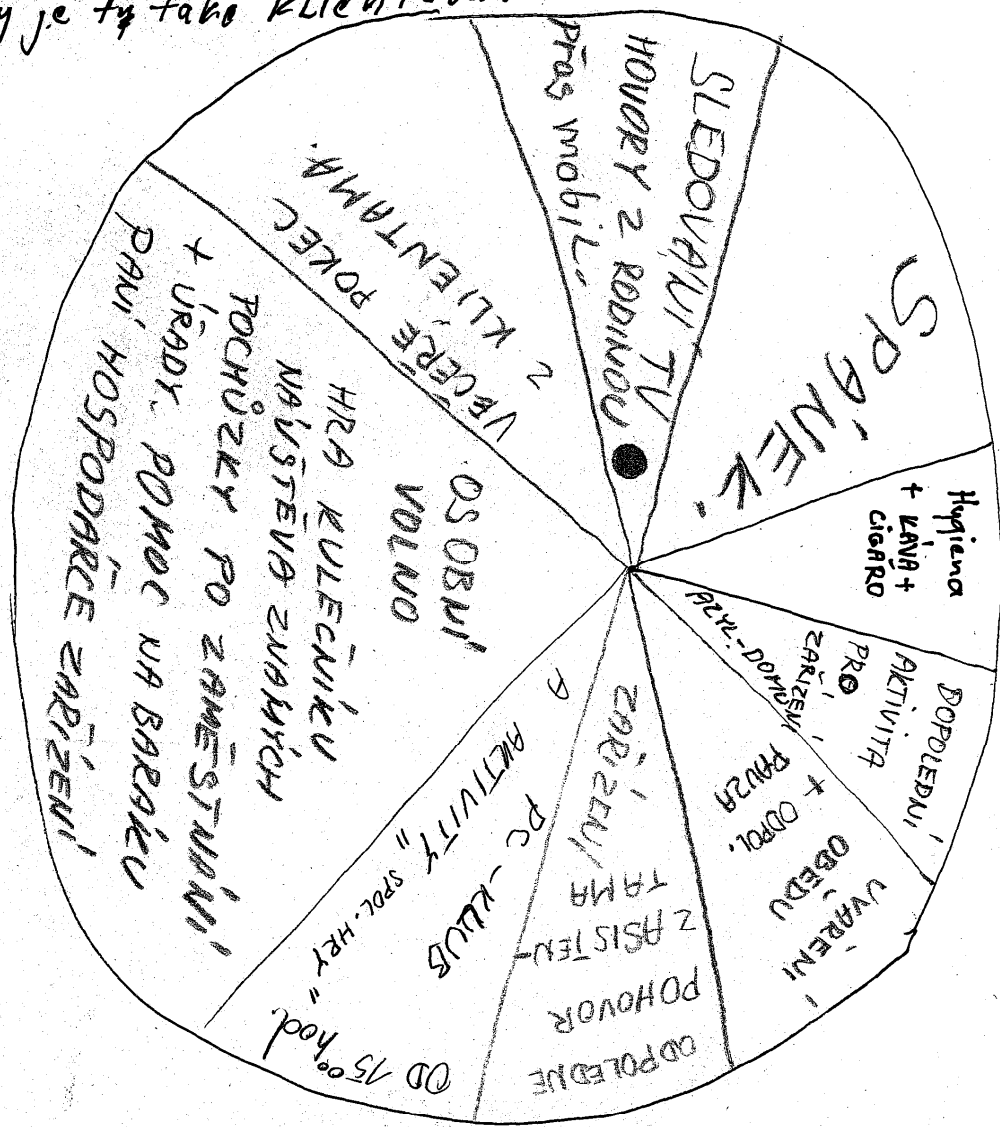 je ty také
SPÁNEK.
Hygiena
+ KÁVA +
CIGARO
DOPOLEDNÍ
AKTIVITA
PRO
ZAŘÍZENÍ
AZYL-DOMU
UVAŘENÍ
OBĚDU
+ ODPOL.
PAUZA
ODPOLEDNE
POHOVOR
Z ASISTEN-
TAMA
ZAŘÍZENÍ
OD 15⁰⁰ hod.
PC - KLUB
AKTIVITY „SPOL. HRY"
A
OSOBNÍ
VOLNO
HRA KULEČNÍKU
NÁVŠTĚVA ZNÁMÝCH
POCHŮZKY PO ZAMĚSTNÁNÍ
+ ÚŘADY. POMOC NA BARÁKU
PANÍ HOSPODÁŘCE ZAŘÍZENÍ
VEČEŘE POKEC
Z KLIENTAMA.
SLEDOVÁNÍ TV
HOVORY Z RODINOU
přas mobil.